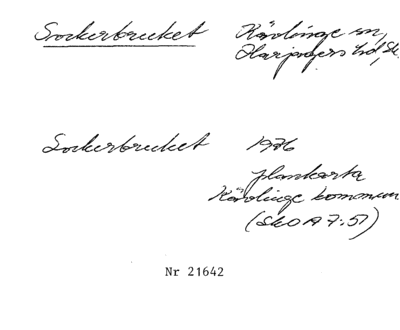 Sockerbruket Kävlinge sn,
Harjagers hd, Sk.
Sockerbruket 1976
plankarta
Kävlinge kommun
(Sk O A 7:51)
Nr 21642